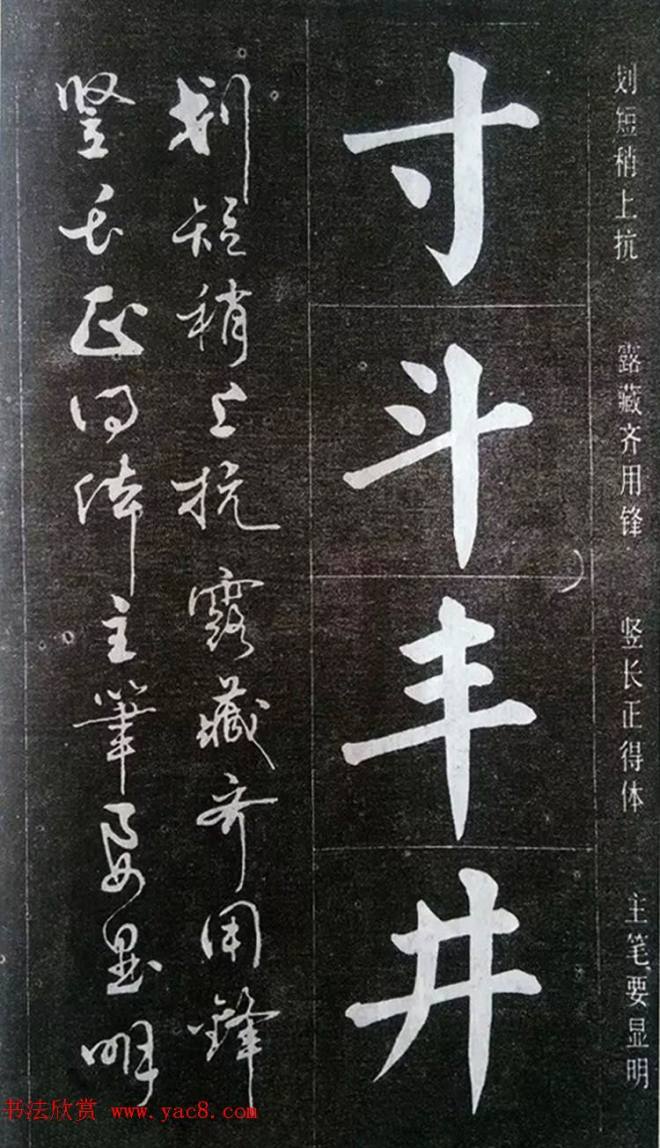 划短稍上抗 露藏齐用锋 竖长正得体 主笔要显明
寸斗丰井
划短稍上抗露藏齐用锋
竖长正得体主笔要显明
书法欣赏 www.yac8.com